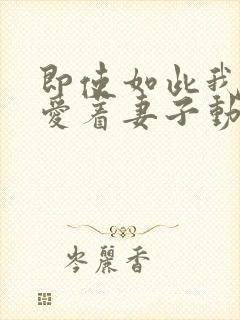 即使如此我
愛着妻子動
岑麗香